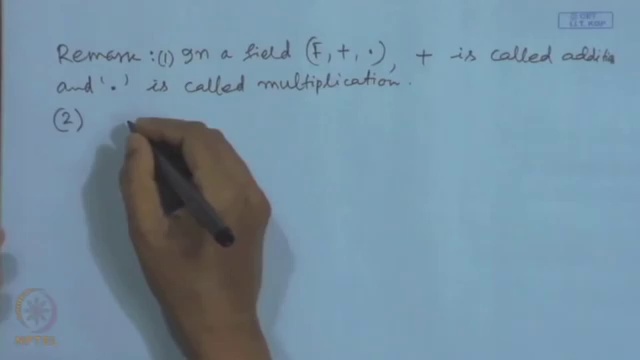 Remark : (1) In a field (F, +, ·), + is called addition
and '·' is called multiplication.
(2)
© CET
I.I.T. KGP
NPTEL